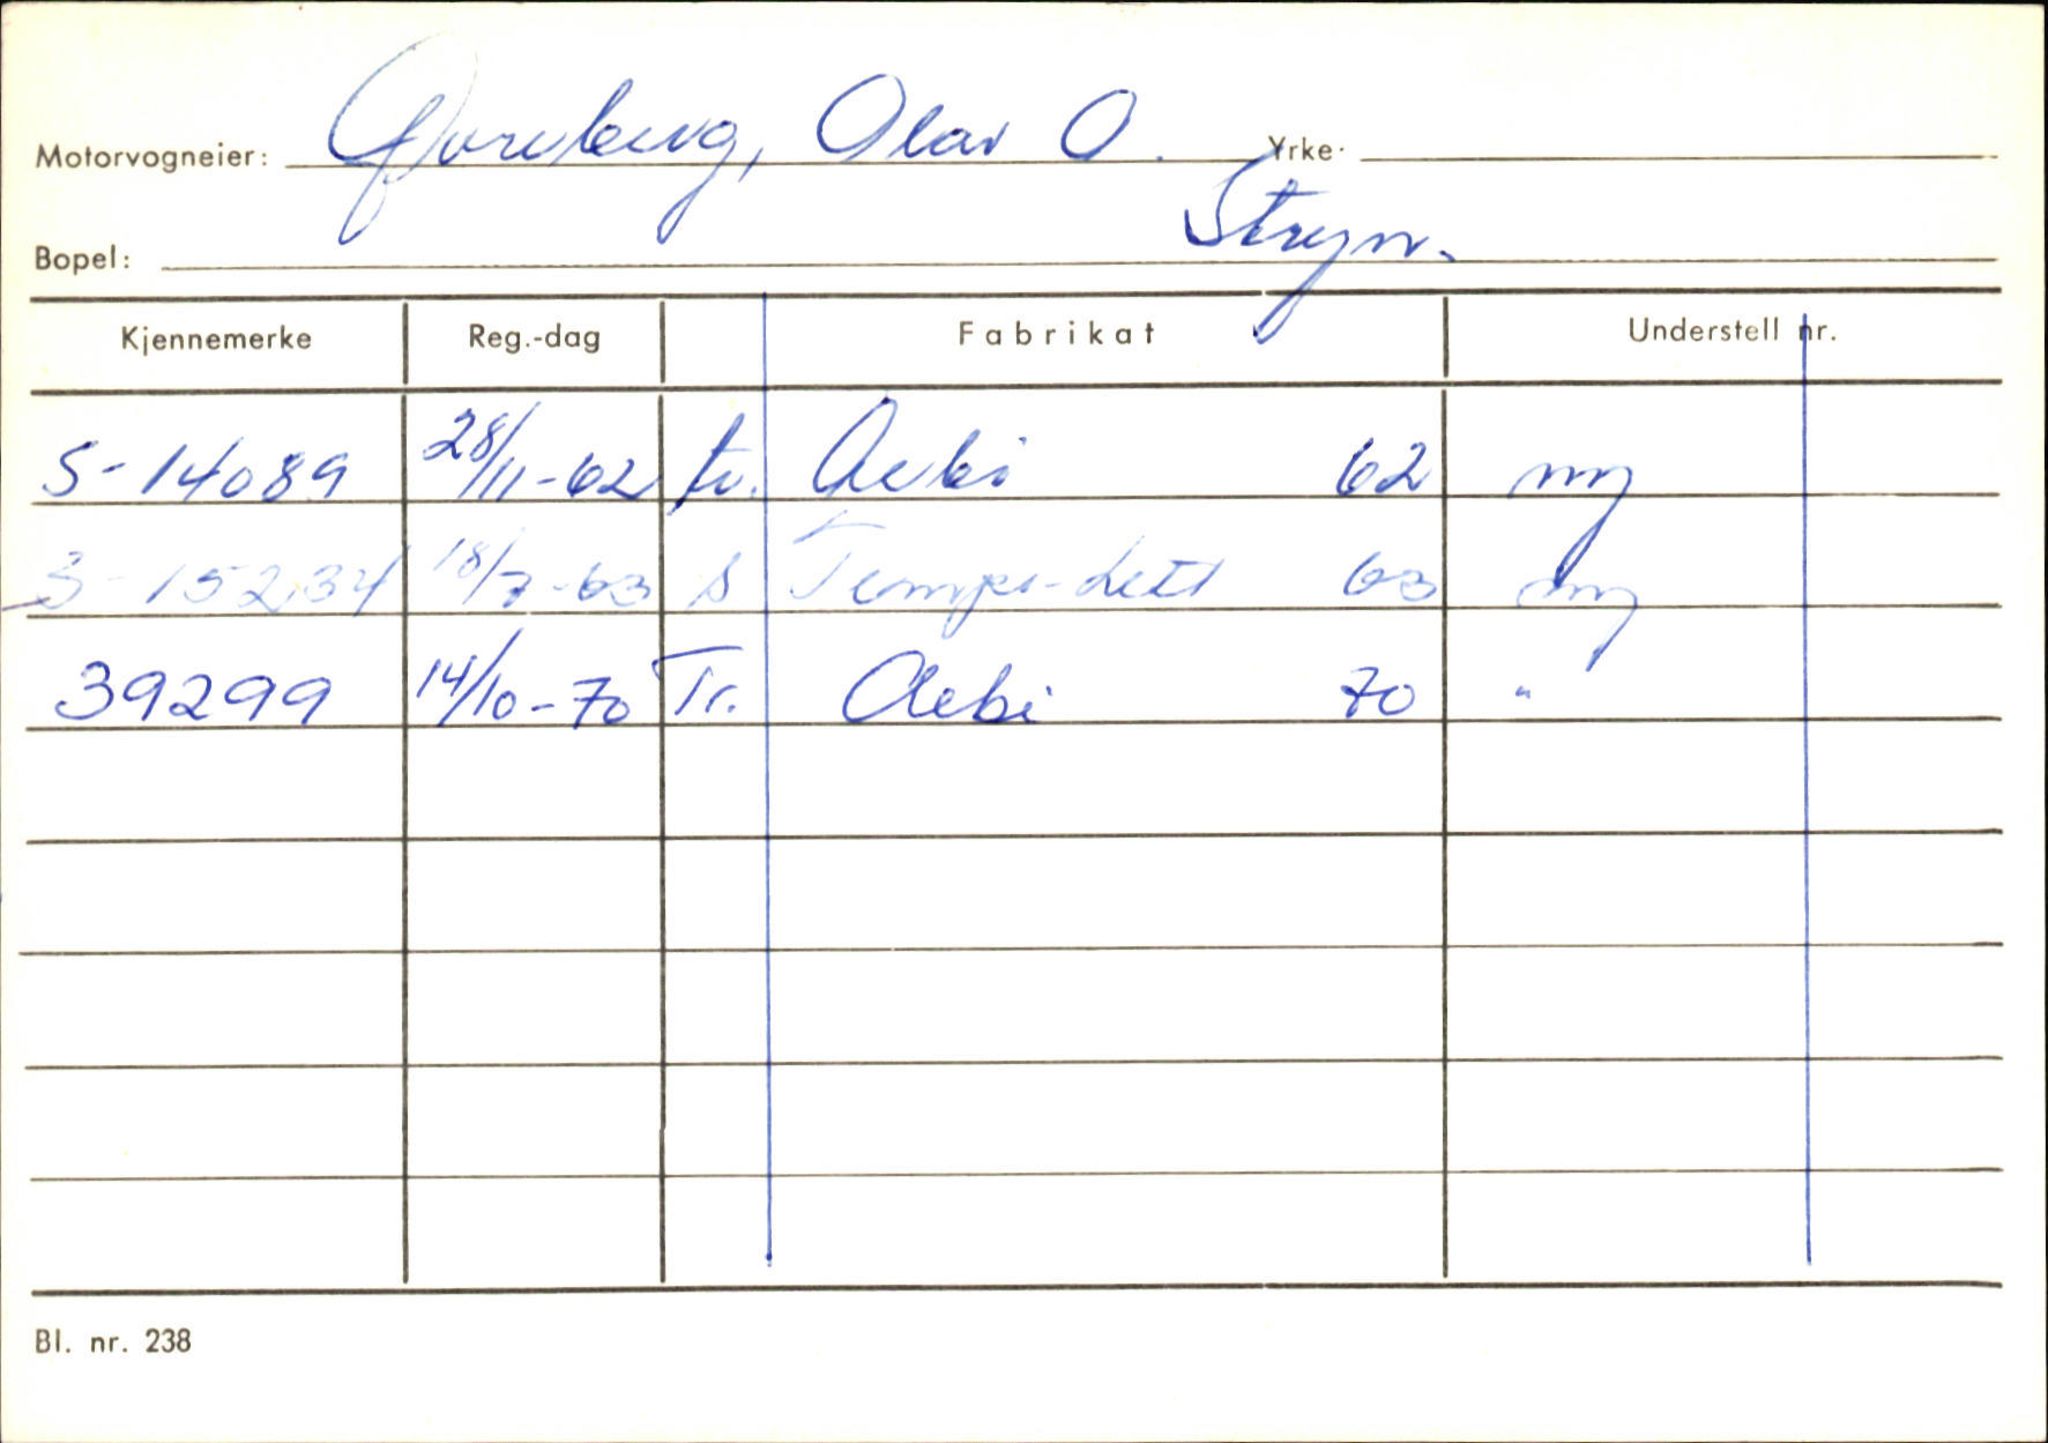 Motorvogneier: Olav O. Yrke:
Bopel: Stryn.
Kjennemerke Reg.-dag Fabrikat Understell nr.
S-14089 28/11-62 tr. Aebi 62 ny
S-15234 18/7-63 s Tempo-Lett 63 ny
39299 14/10-70 Tr. Aebi 70 "
Bl. nr. 238